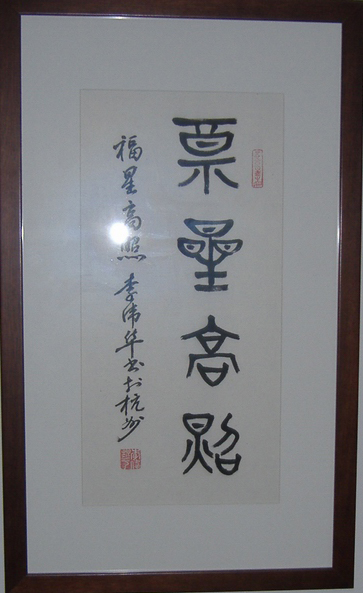 福星高照
福星高照 李伟华书于杭州